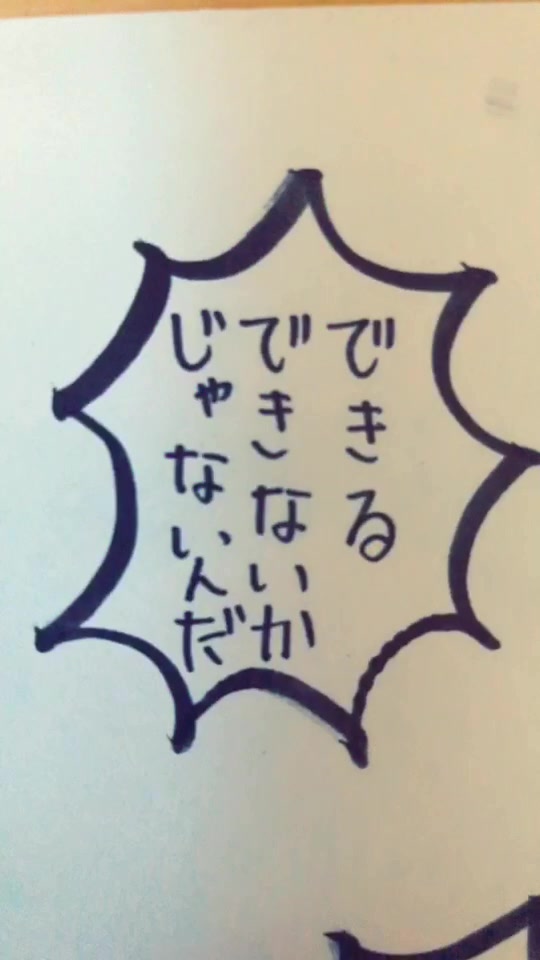 できる
できないか
じゃないんだ